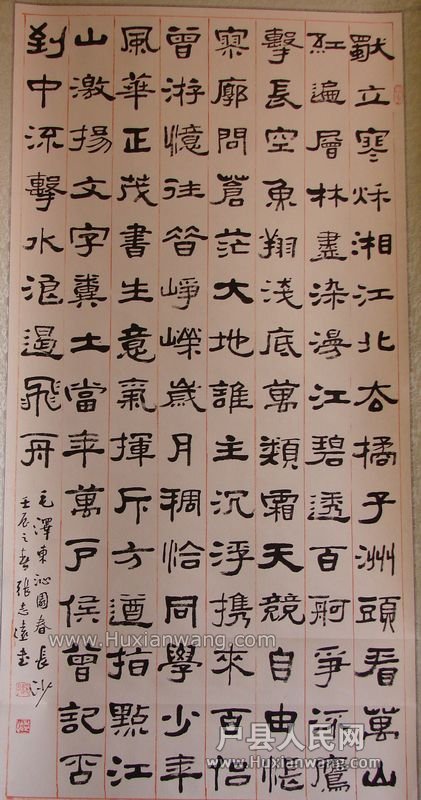 獨立寒秋湘江北去橘子洲頭看萬山
紅遍層林盡染漫江碧透百舸爭流鷹
擊長空魚翔淺底萬類霜天競自由悵
寥廓問蒼茫大地誰主沉浮携來百侣
曾游憶往昔崢嶸歲月稠恰同學少年
風華正茂書生意氣揮斥方遒指點江
山激揚文字糞土當年萬户侯曾記否
到中流擊水浪遏飛舟
毛澤東沁園春長沙
壬辰之春張志遠書
www.Huxianwang.com
户县人民网
www.Huxianwang.com